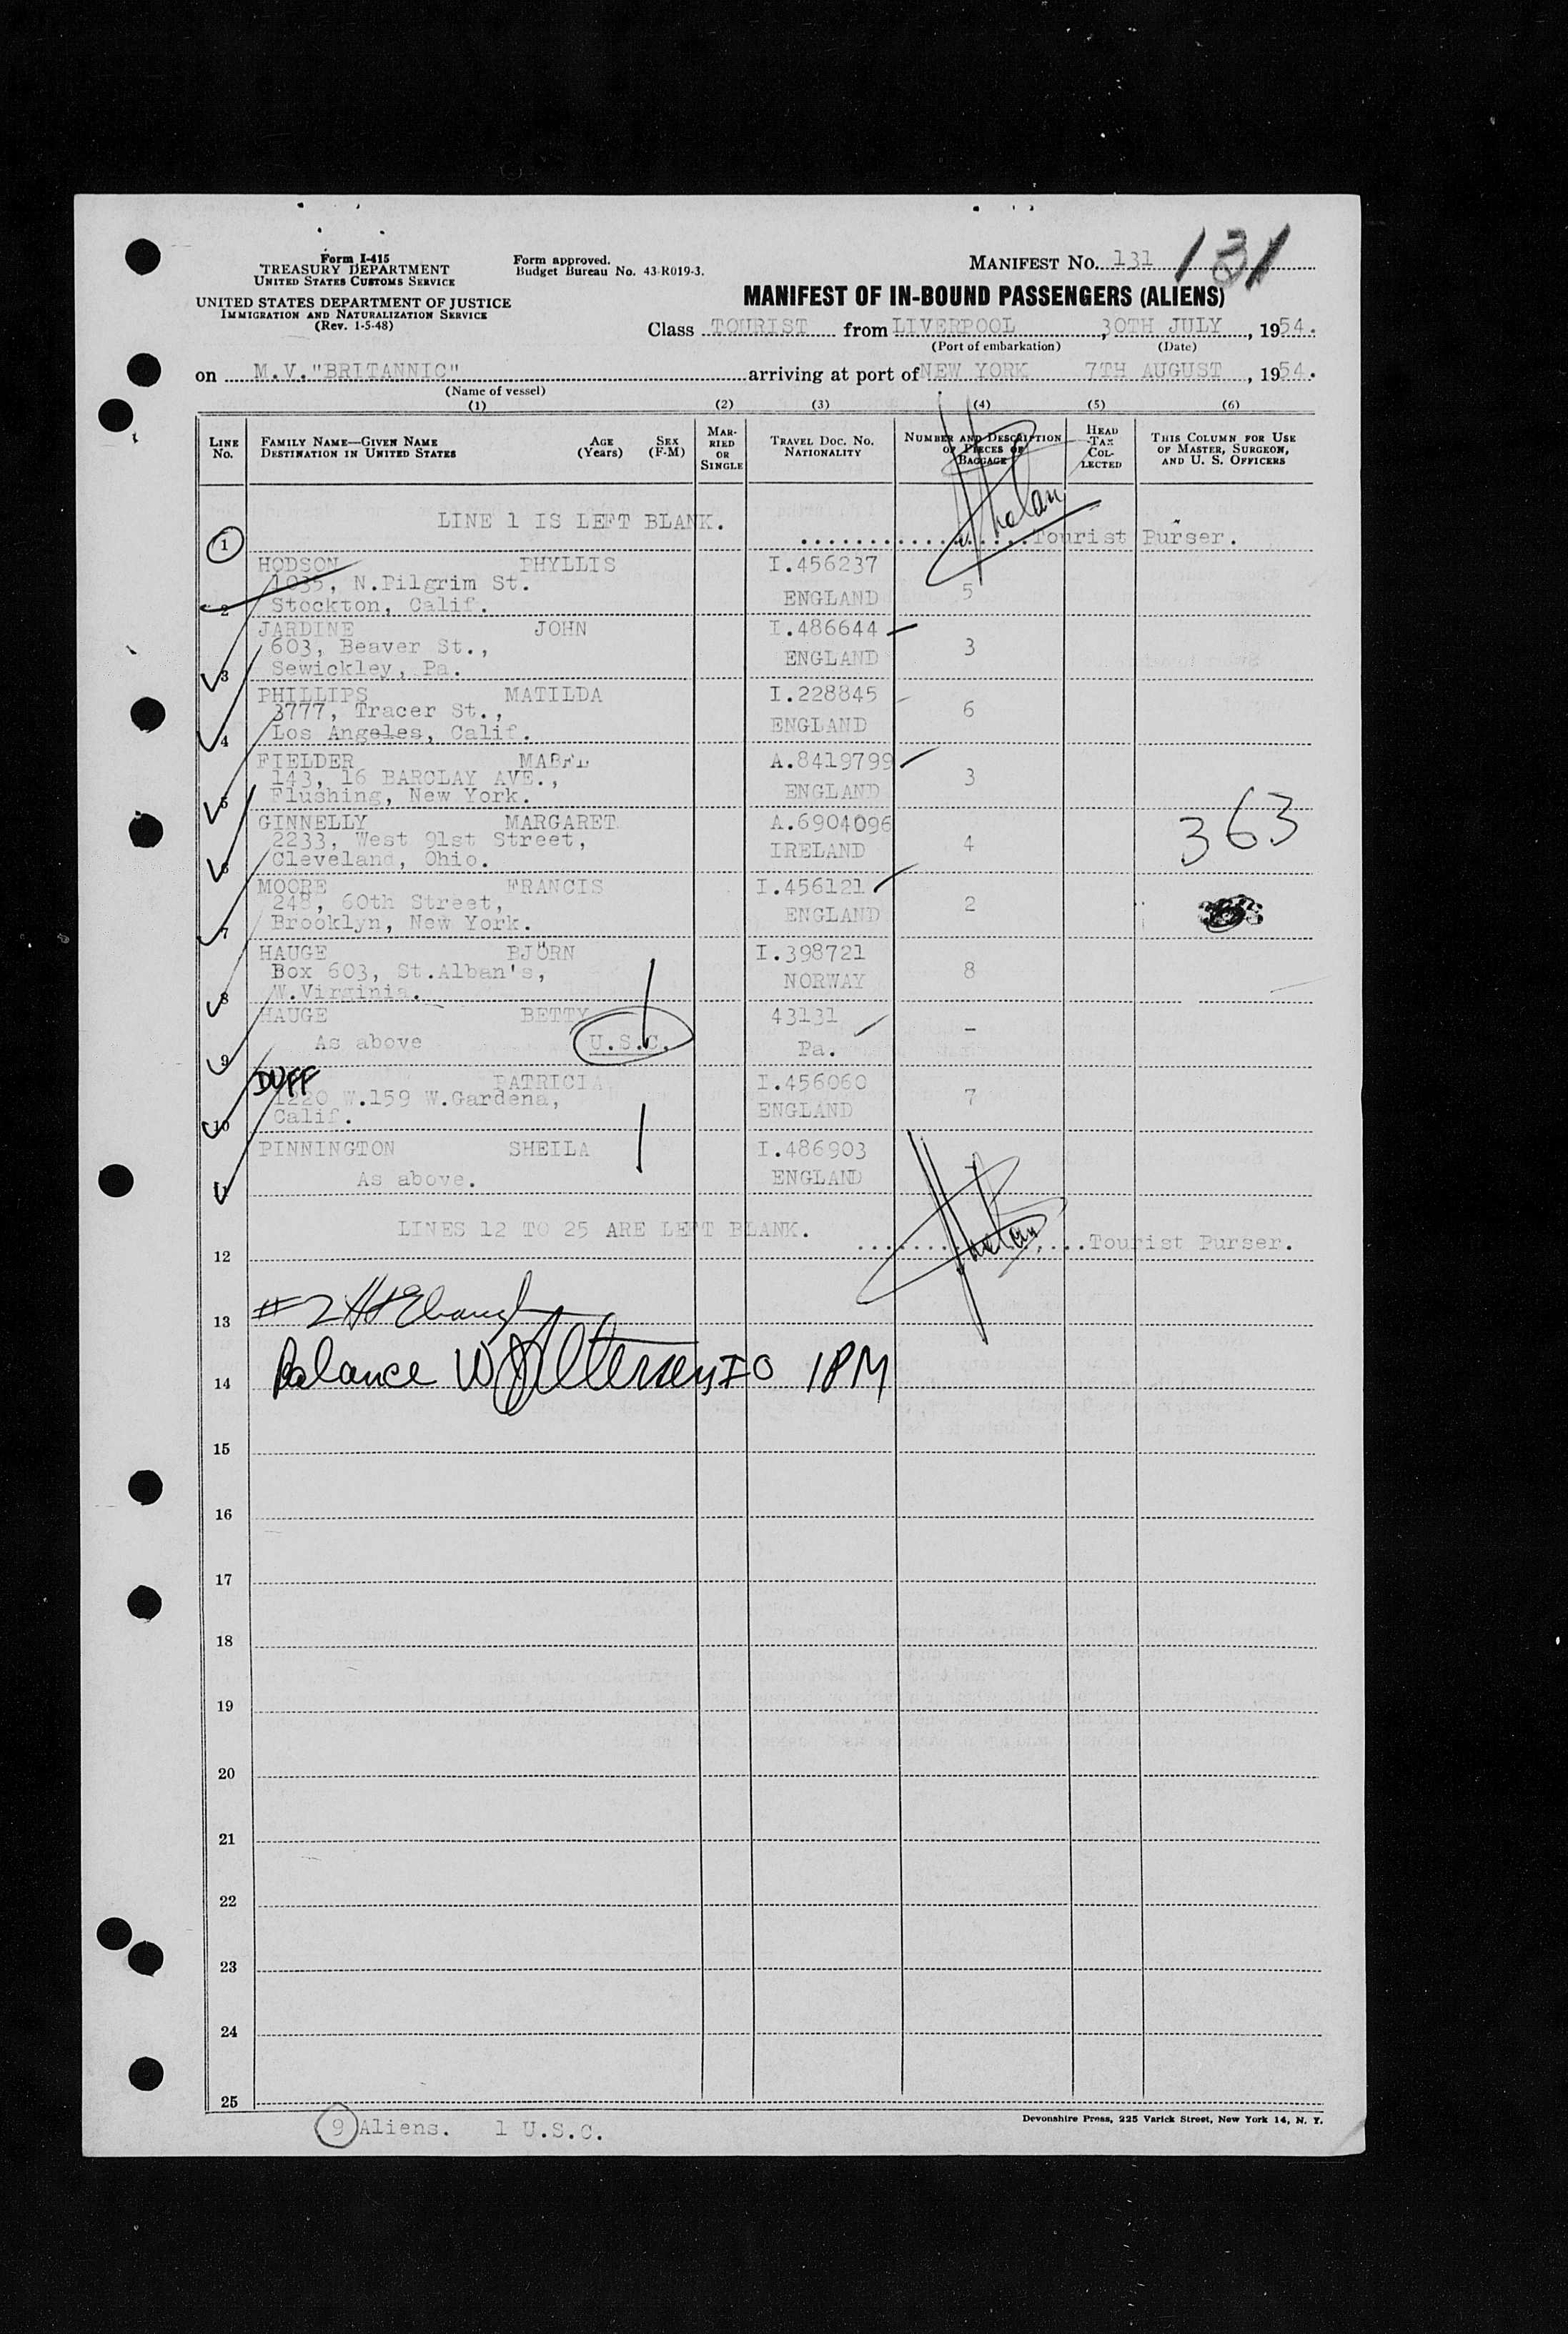 Form I-415
TREASURY DEPARTMENT
UNITED STATES CUSTOMS SERVICE
UNITED STATES DEPARTMENT OF JUSTICE
IMMIGRATION AND NATURALIZATION SERVICE
(Rev. 1-5-48)
Form approved.
Budget Bureau No. 43-R019-3.
MANIFEST NO. 131 131
MANIFEST OF IN-BOUND PASSENGERS (ALIENS)
Class TOURIST from LIVERPOOL, 30TH JULY, 1954.
(Port of embarkation) (Date)
on M.V."BRITANNIC" arriving at port of NEW YORK 7TH AUGUST, 1954.
(Name of vessel)
(1) (2) (3) (4) (5) (6)
LINE No. FAMILY NAME—GIVEN NAME DESTINATION IN UNITED STATES AGE (Years) SEX (F-M) MARRIED OR SINGLE TRAVEL DOC. NO. NATIONALITY NUMBER AND DESCRIPTION OF PIECES OF BAGGAGE HEAD TAX COLLECTED THIS COLUMN FOR USE OF MASTER, SURGEON, AND U. S. OFFICERS
LINE 1 IS LEFT BLANK.
1 Tourist Purser.
HODSON PHYLLIS I.456237
1035, N.Pilgrim St. 5
2 Stockton, Calif. ENGLAND
JARDINE JOHN I.486644
603, Beaver St., 3
3 Sewickley, Pa. ENGLAND
PHILLIPS MATILDA I.228845
3777, Tracer St., 6
4 Los Angeles, Calif. ENGLAND
FIELDER MABEL A.8419799
143, 16 BARCLAY AVE., 3
5 Flushing, New York. ENGLAND
GINNELLY MARGARET A.6904096
2233, West 91st Street, 4 363
6 Cleveland, Ohio. IRELAND
MOORE FRANCIS I.456121
248, 60th Street, 2
7 Brooklyn, New York. ENGLAND
HAUGE BJÖRN I.398721
Box 603, St.Alban's, 8
8 W.Virginia. NORWAY
HAUGE BETTY 43131 -
9 As above U.S.C. Pa.
DUFF PATRICIA I.456060
1220 W.159 W.Gardena, 7
10 Calif. ENGLAND
PINNINGTON SHEILA I.486903
11 As above. ENGLAND
LINES 12 TO 25 ARE LEFT BLANK.
12 Tourist Purser.
13 #2
14 Balance IO 1PM
15
16
17
18
19
20
21
22
23
24
25
9 Aliens. 1 U.S.C.
Devonshire Press, 225 Varick Street, New York 14, N. Y.